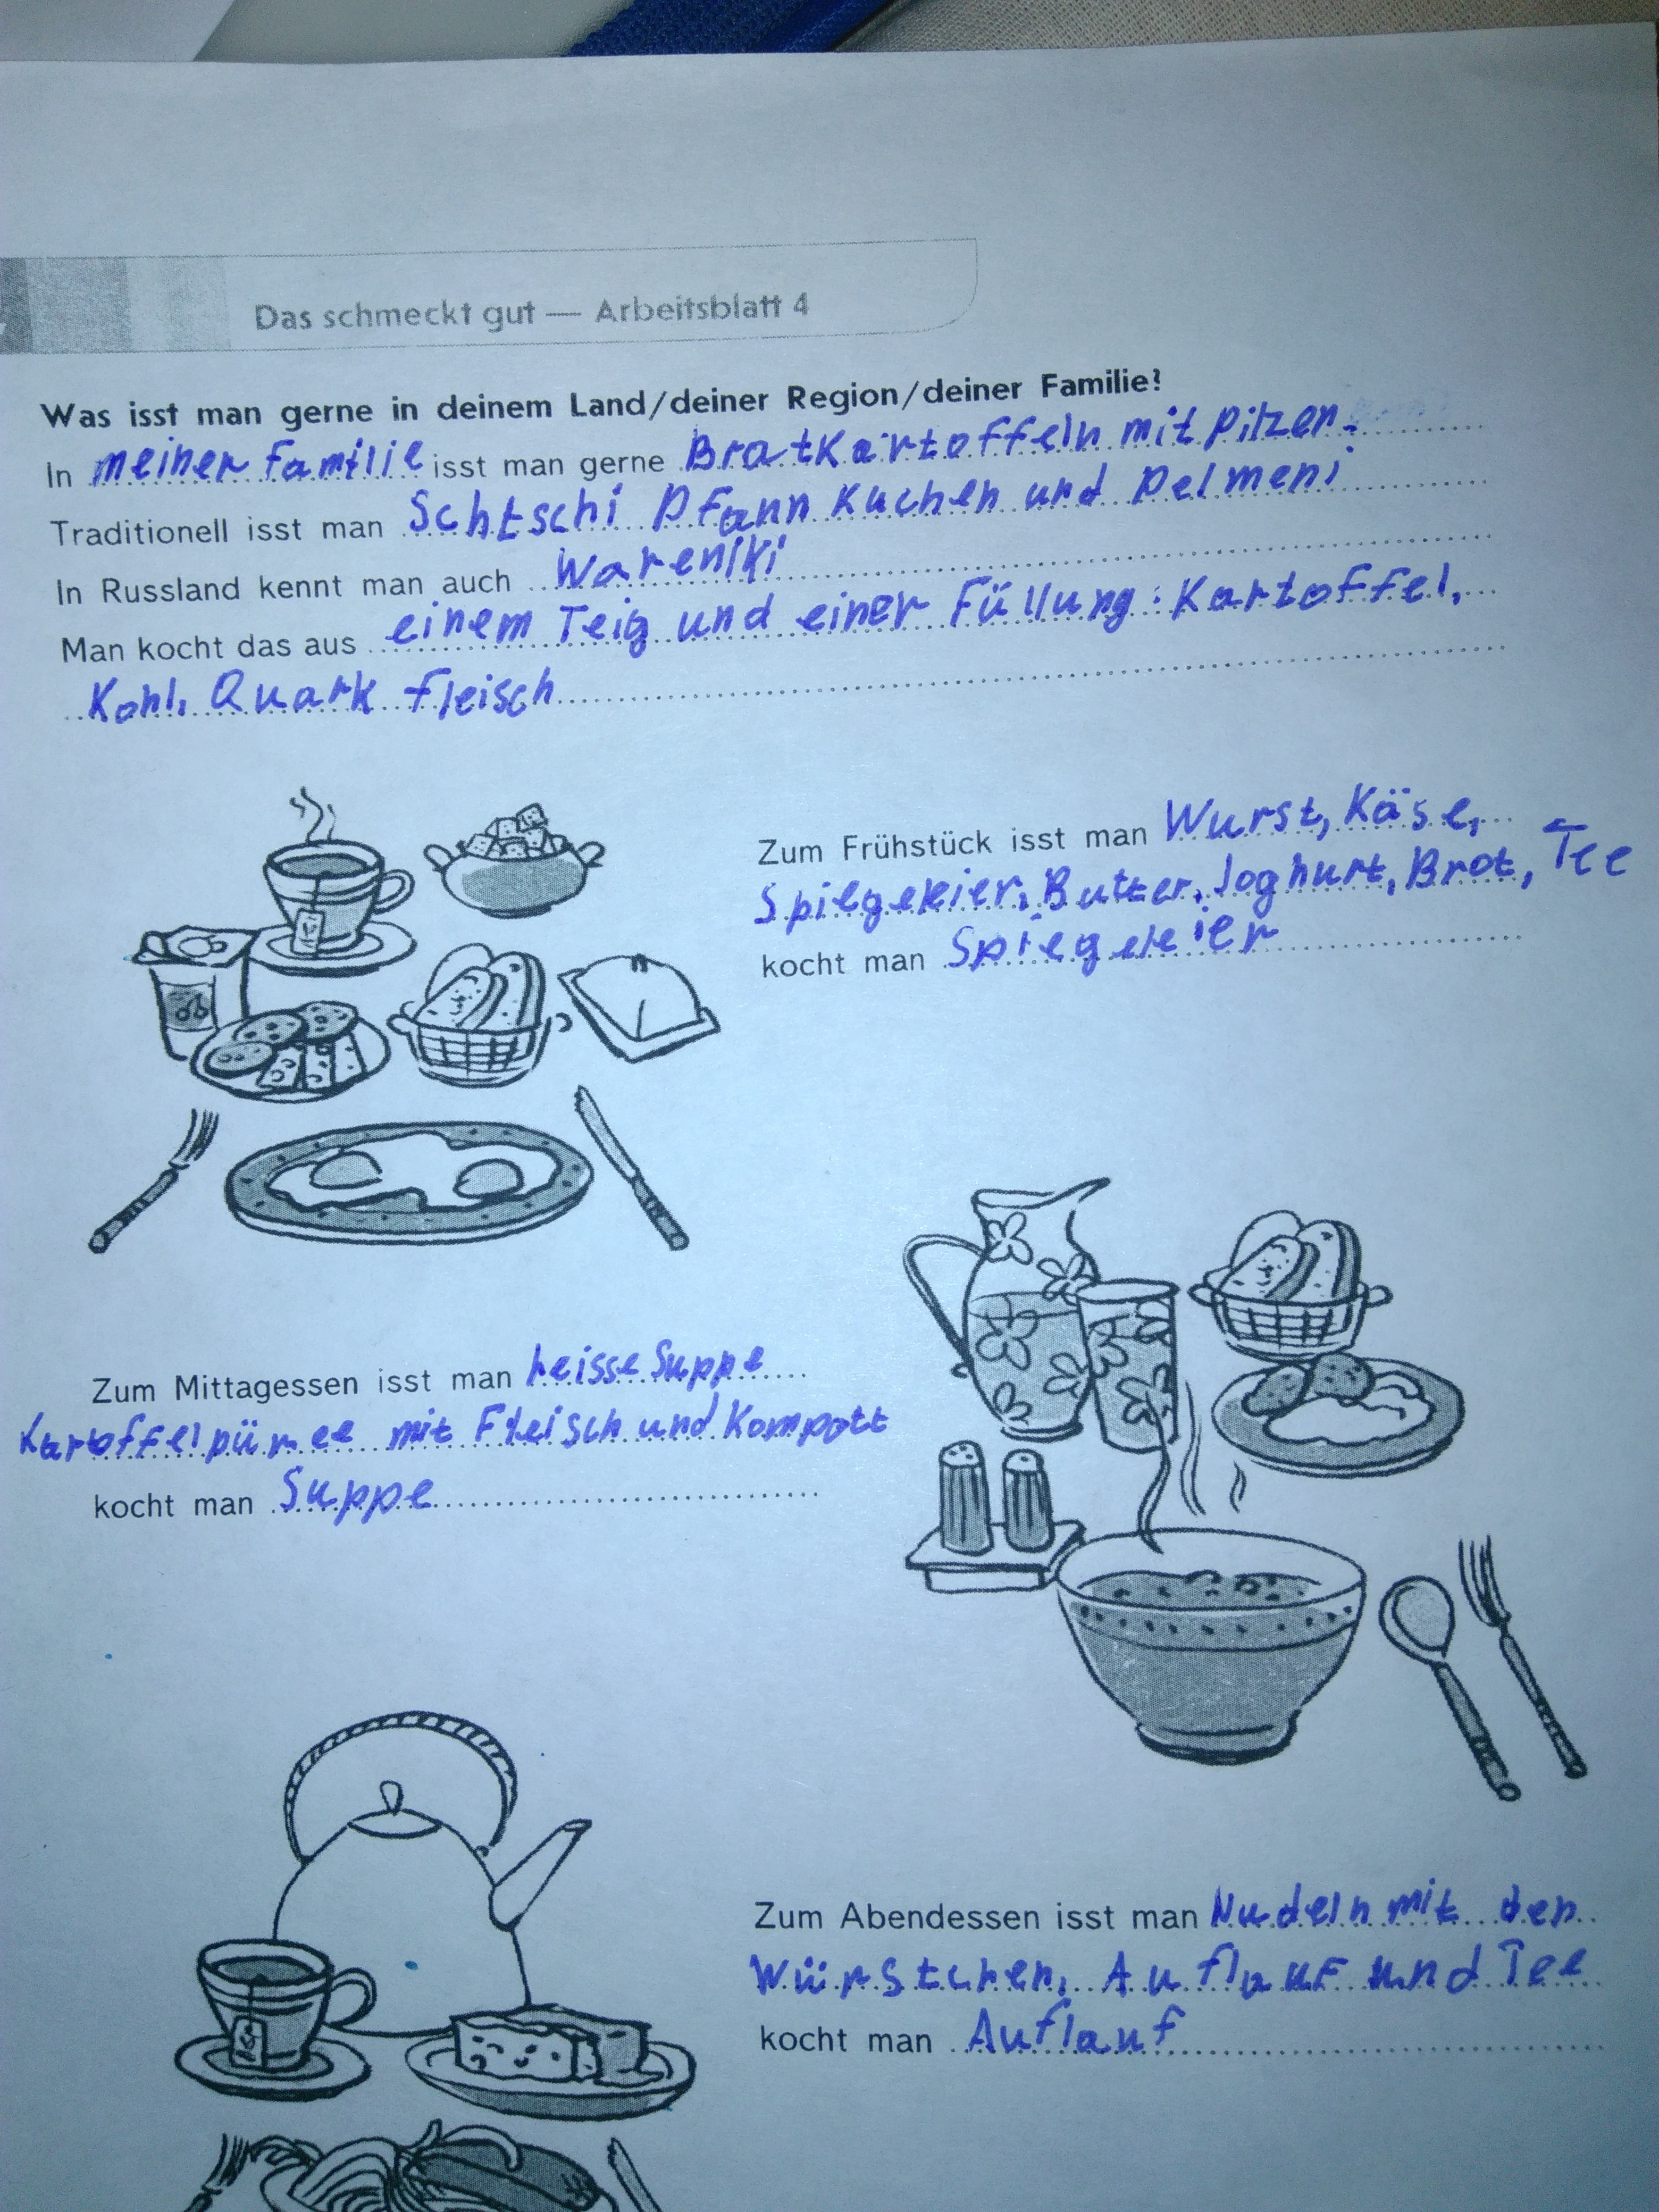 Das schmeckt gut — Arbeitsblatt 4
Was isst man gerne in deinem Land/deiner Region/deiner Familie?
In meiner Familie isst man gerne Bratkartoffeln mit Pilzen.
Traditionell isst man Schtschi Pfannkuchen und Pelmeni
In Russland kennt man auch Wareniki
Man kocht das aus einem Teig und einer Füllung: Kartoffel,
Kohl, Quark Fleisch
Zum Frühstück isst man Wurst, Käse,
Spilgeleier, Butter, Joghurt, Brot, Tee
kocht man Spiegeleier
Zum Mittagessen isst man heisse Suppe
Kartoffelpüree mit Fleisch und Kompott
kocht man Suppe
Zum Abendessen isst man Nudeln mit den
Würstchen, Auflauf und Tee
kocht man Auflauf